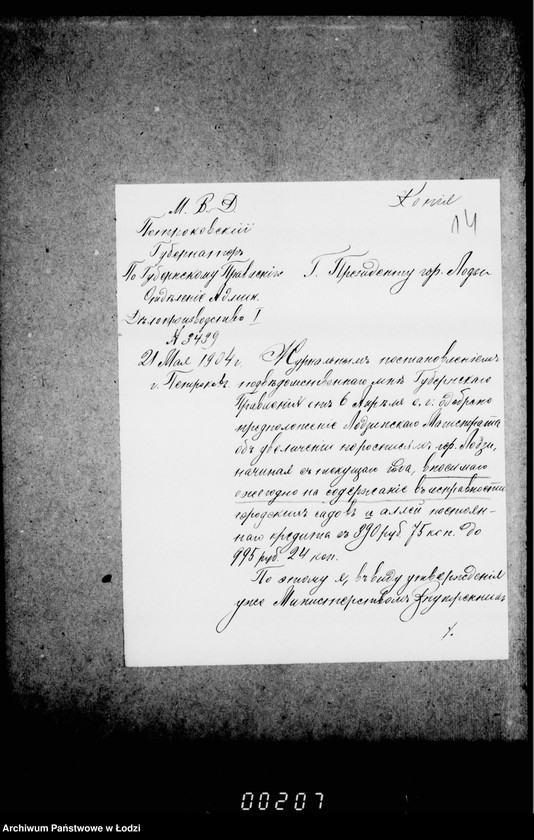 М. В. Д.
Копія
14
Петроковскій
Губернаторъ
По Губернскому Правленію
Г. Президенту гор. Лодзи
Отдѣленіе Админ.
Дѣлопроизводство I
№ 3439
21 Мая 1904 г.
г. Петроковъ
Журнальнымъ постановленіемъ
подвѣдомственнаго мнѣ Губернскаго
Правленія отъ 6 Апрѣля с. г. одобрено
предположеніе Лодзинскаго Магистрата
объ увеличеніи по росписямъ гор. Лодзи,
начиная съ текущаго года, вносимаго
ежегодно на содержаніе въ исправности
городскихъ садовъ и аллей постоян-
наго кредита съ 390 руб. 75 коп. до
995 руб. 24 коп.
По этому я, въ виду утвержденія
уже Министерствомъ Внутреннихъ
00207
Archiwum Państwowe w Łodzi